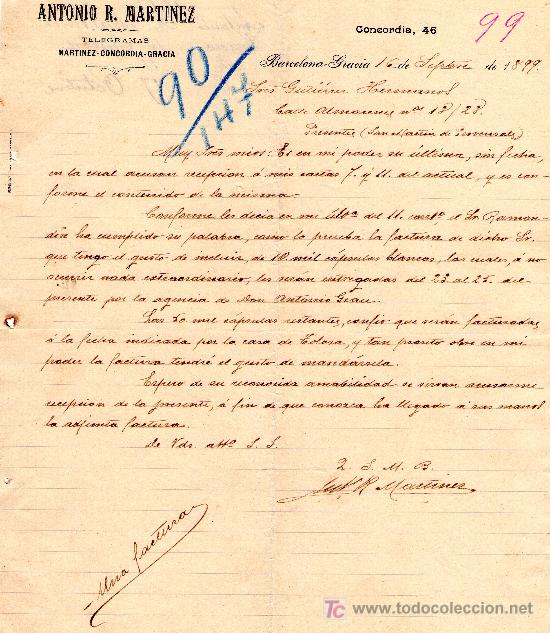 ANTONIO R. MARTINEZ
TELEGRAMAS
MARTINEZ-CONCORDIA-GRACIA
Concordia, 46
99
90/147
Barcelona-Gracia 16 de Septbre de 1899
Sres Gutiérrez Hermanos
Calle Almacenes nos 18/23.
Presente (San Martin de Provensals)
Muy Sres mios: Es en mi poder su última, sin fecha,
en la cual acusan recepcion á mis cartas 7 y 11 del actual, y es con-
forme el contenido de la misma.
Conforme les decía en mi última del 11 corrte el Sr. Ramon-
din ha cumplido su palabra, como lo prueba la factura de dicho Sr.
que tengo el gusto de incluir, de 10 mil cápsulas blancas, las cuales, á no
ocurrir nada extraordinario, les serán entregadas del 23 al 25 del
presente por la agencia de Don Antonio Grau.
Las 20 mil cápsulas restantes, confio que serán facturadas
á la fecha indicada por la casa de Tolosa, y tan pronto obre en mi
poder la factura tendré el gusto de mandársela.
Espero de su reconocida amabilidad se sirvan acusarme
recepcion de la presente, á fin de que conozca ha llegado á sus manos
la adjunta factura.
De Vds. atto S. S.
Q. S. M. B.
Anto R Martinez
Una factura
todocoleccion
www.todocoleccion.net